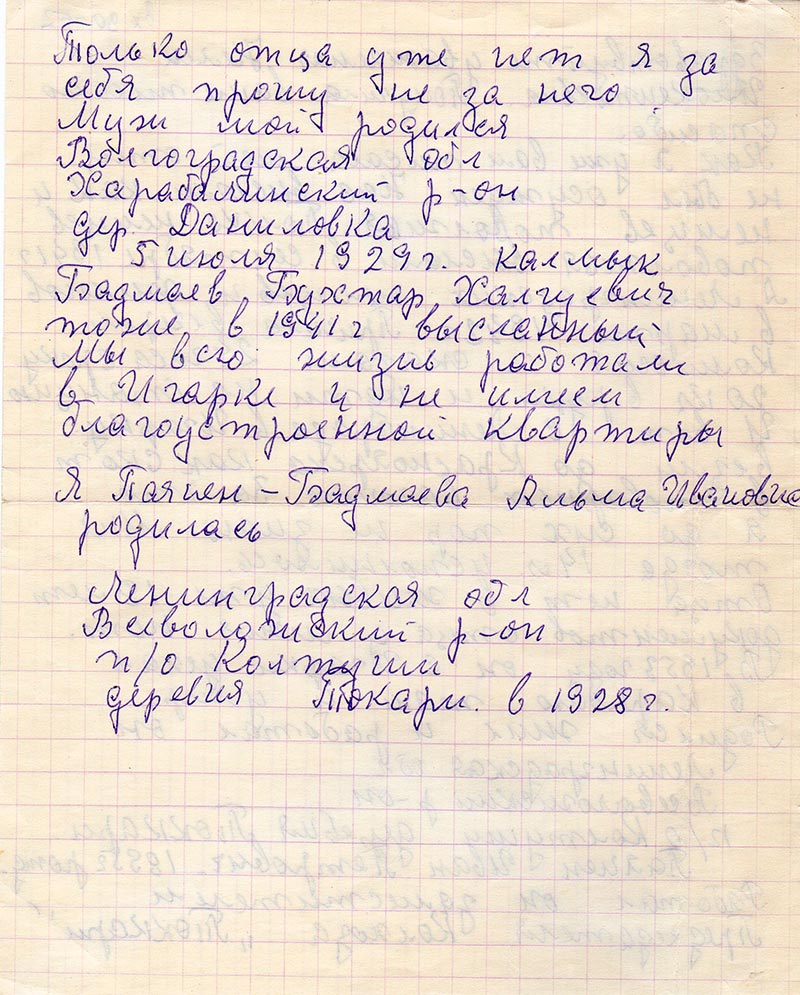 Только отца уже нет я за
себя прошу не за него
Муж мой родился
Волгоградская обл
Харабалинский р-он
дер Даниловка
5 июля 1929 г. калмык
Бадмаев Бухтар Халгуевич
тоже в 1941 г высланный
Мы всю жизнь работали
в Игарке и не имеем
благоустроенной квартиры
Я Паяпен-Бадмаева Альма Ивановна
родилась
Ленинградская обл
Всеволожский р-он
п/о Колтуши
деревня Токкари. в 1928 г.